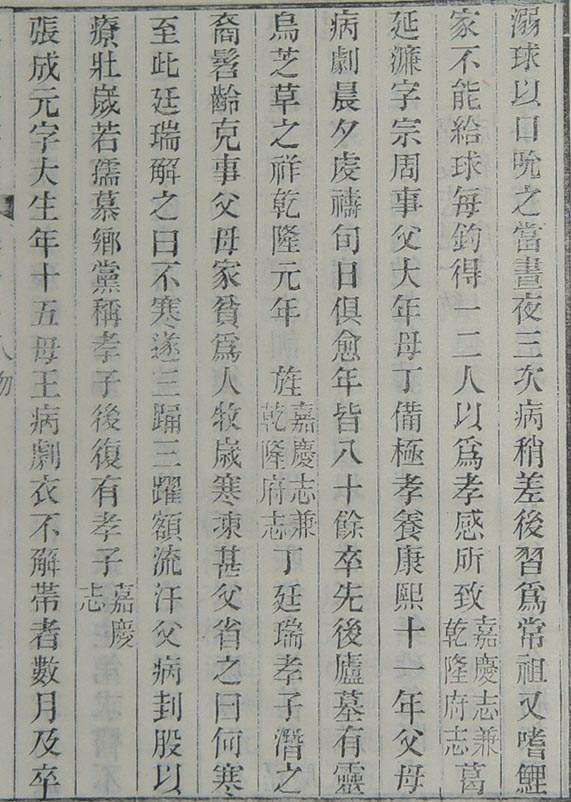 溺球以口吮之當晝夜三次病稍差後習爲常祖又嗜鯉
家不能給球每釣得一二人以爲孝感所致嘉慶志兼乾隆府志葛
延濂字宗周事父大年母丁備極孝養康熙十一年父母
病劇晨夕虔禱旬日俱愈年皆八十餘卒先後廬墓有靈
烏芝草之祥乾隆元年 旌嘉慶志兼乾隆府志丁廷瑞孝子潛之
裔髫齡克事父母家貧爲人牧歲寒凍甚父省之曰何寒
至此廷瑞解之曰不寒遂三踊三躍額流汗父病刲股以
療壯歲若孺慕鄉黨稱孝子後復有孝子嘉慶志
張成元字大生年十五母王病劇衣不解帶者數月及卒